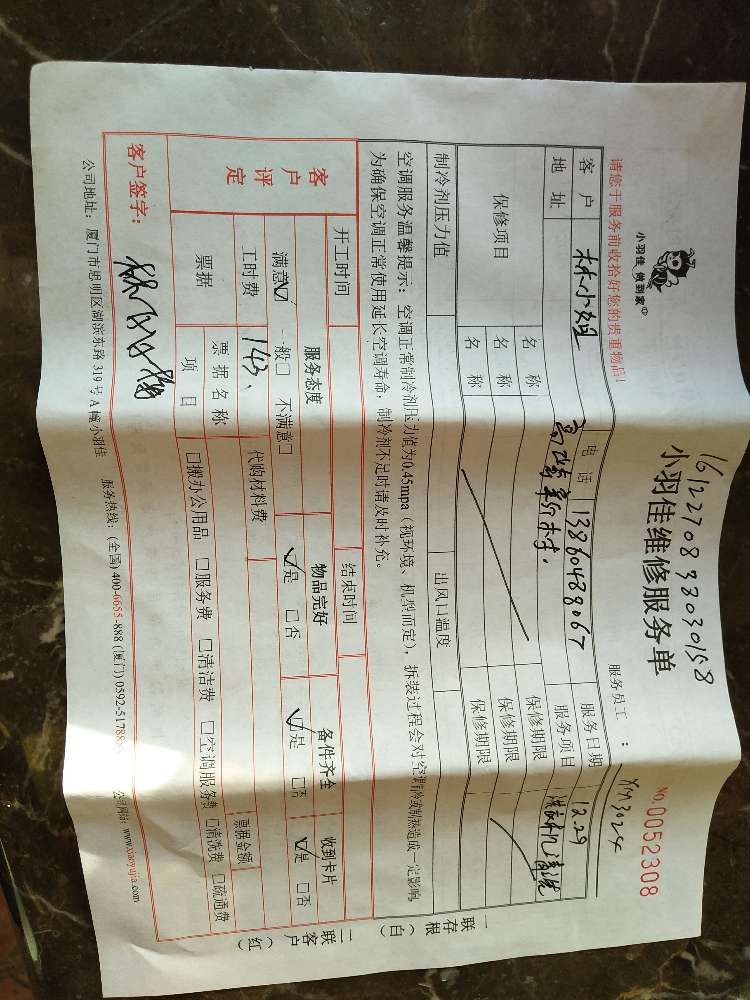 16122708933030158
小羽佳 做到家
小羽佳维修服务单
No.0052308
请您于服务前收拾好您的贵重物品!
服务员工 : XM3024
客户 林小姐 电话 13860438867 服务日期 12.29
地址 服务项目 洗衣机清洗
保修项目 名称 保修期限
名称 保修期限
名称 保修期限
制冷剂压力值 出风口温度
空调服务温馨提示:空调正常制冷剂压力值为0.45mpa(视环境、机型而定),拆装过程会对空调制冷或制热造成一定影响,
为确保空调正常使用延长空调寿命,制冷剂不足时请及时补充。
开工时间 结束时间
客户评定 服务态度 物品完好 备件齐全 收到卡片
满意☑ 一般□ 不满意□ ☑是 □否 ☑是 □否 ☑是 □否
工时费 143. 代购材料费
票据 票据名称 票据金额
项目 □搬办公用品 □服务费 □清洁费 □空调服务费 □清洗费 □疏通费
客户签字:
公司地址:厦门市思明区湖滨东路319号A幢小羽佳 服务热线:(全国)400-6655-888 (厦门)0592-517888 公司网站:www.xiaoyujia.com
一联存根(白)
二联客户(红)